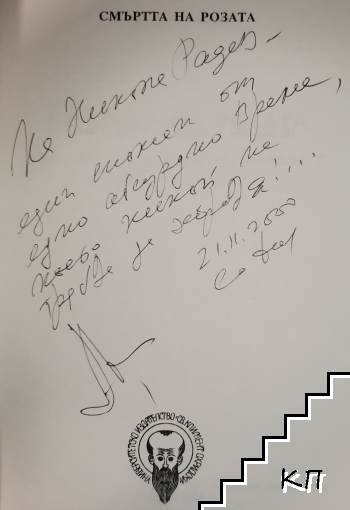 СМЪРТТА НА РОЗАТА
На Никола Радев –
един спомен от
едно абсурдно време,
което никой не
трябва да забравя!...
21.11.2000
София
УНИВЕРСИТЕТСКО ИЗДАТЕЛСТВО · СВ. КЛИМЕНТ ОХРИДСКИ ·
КП